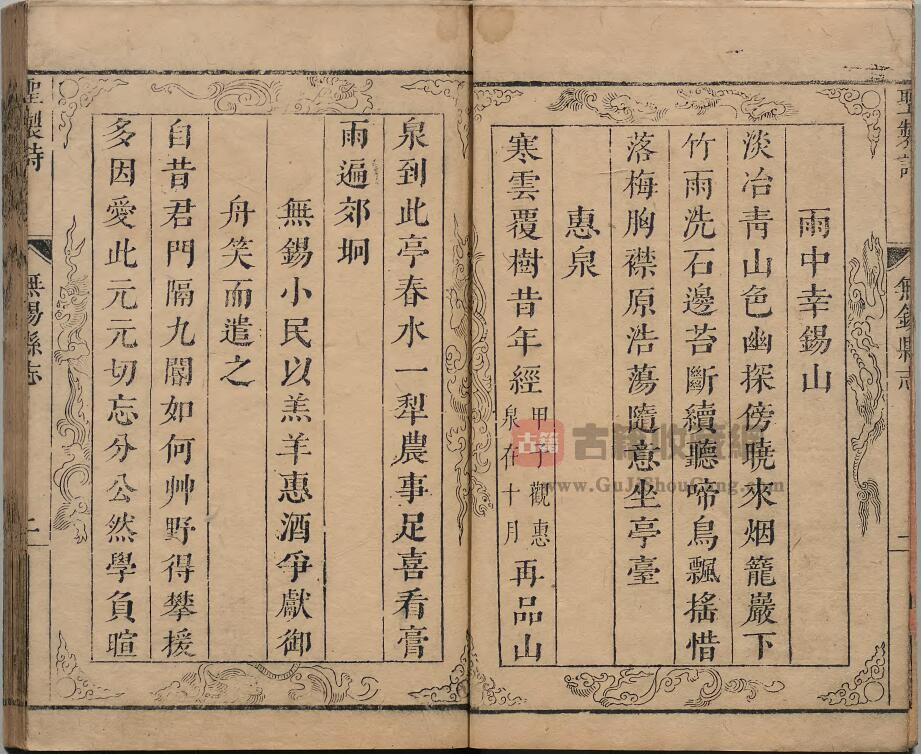 雨中幸錫山
淡冶靑山色幽探傍曉來烟籠嚴下
竹雨洗石邊苔斷續聽啼鳥飄揺惜
落梅胸襟原浩蕩隨意坐亭臺
惠泉
寒雲覆樹昔年經甲子觀惠泉在十月再品山
泉到此亭春水一犁農事足喜看膏
雨遍郊坰
無錫小民以羔羊惠酒爭獻御
舟笑而遣之
自昔君門隔九閽如何艸野得攀援
多因愛此元元切忘分公然學負暄
聖製詩
無錫縣志
二
聖製詩
無錫縣志
古籍
古籍收藏網
www.GuJiShouCang.com